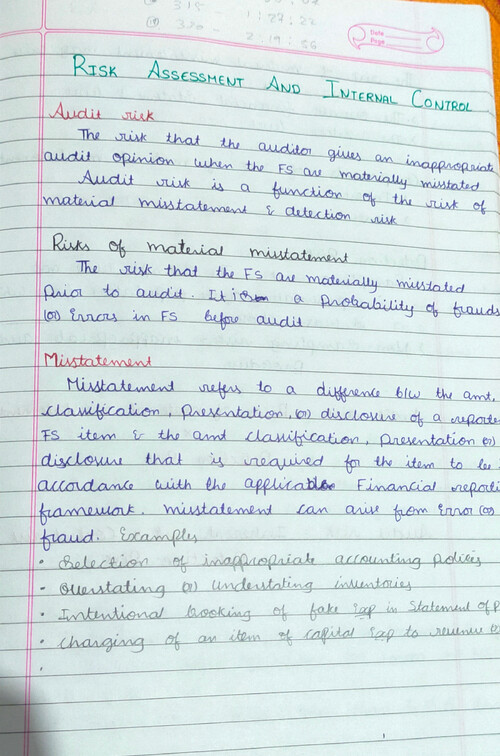 315 -
(19) 320 - 1:27:22
2:19:56
Date
Page
RISK ASSESSMENT AND INTERNAL CONTROL
Audit risk
The risk that the auditor gives an inappropriate
audit opinion when the FS are materially misstated
Audit risk is a function of the risk of
material misstatement & detection risk
Risks of material misstatement
The risk that the FS are materially misstated
prior to audit. It is a probability of frauds
(or) Errors in FS before audit
Misstatement
Misstatement refers to a difference b/w the amt,
classification, presentation, (or) disclosure of a reporte
FS item & the amt classification, presentation (or)
disclosure that is required for the item to be
accordance with the applicable Financial reporti
framework. misstatement can arise from Error (or)
fraud. Examples
• Selection of inappropriate accounting polices
• Overstating (or) understating inventories
• Intentional booking of fake Exp in Statement of P
• Charging of an item of capital Exp to revenue
•